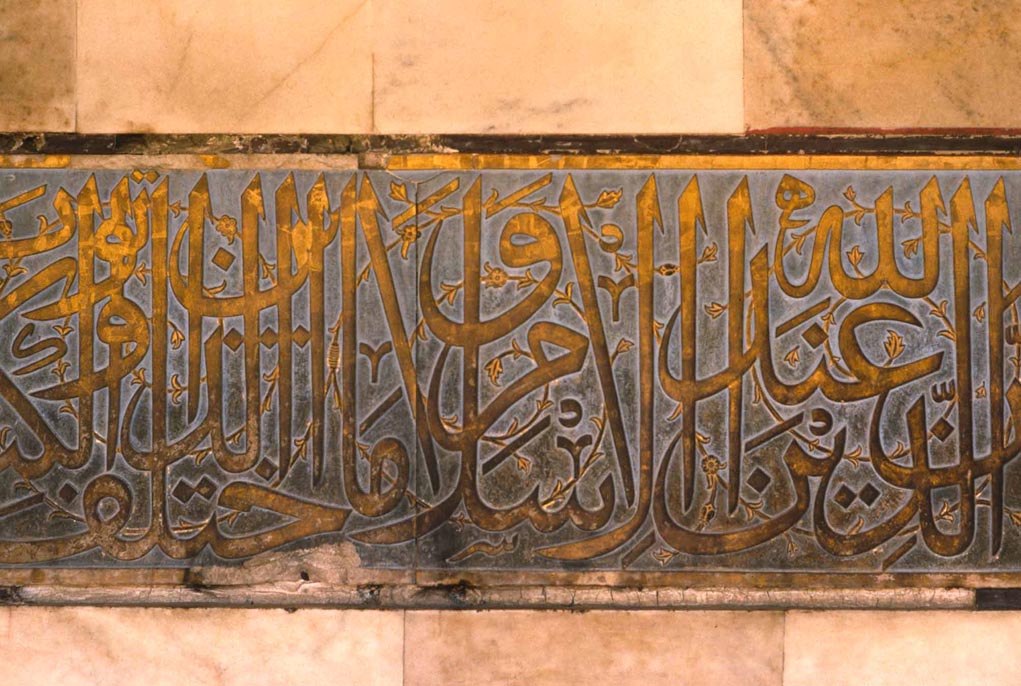 الدين عند الله الاسلام وما اختلف الذين اوتوا الكتب